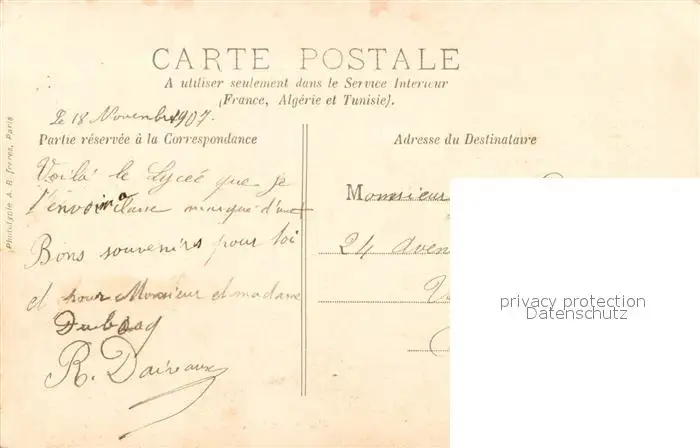 CARTE POSTALE
A utiliser seulement dans le Service Intérieur
(France, Algérie et Tunisie).
Le 18 Novembre 1907.
Partie réservée à la Correspondance
Adresse du Destinataire
Voilà le Lyceé que je
t'envoi classe marqué d'un +
Bons souvenirs pour toi
et pour Monsieur et madame
Dubosq
R. Daireaux
Monsieur
24 Aven
Phototypie A. B. frères, Paris
privacy protection
Datenschutz